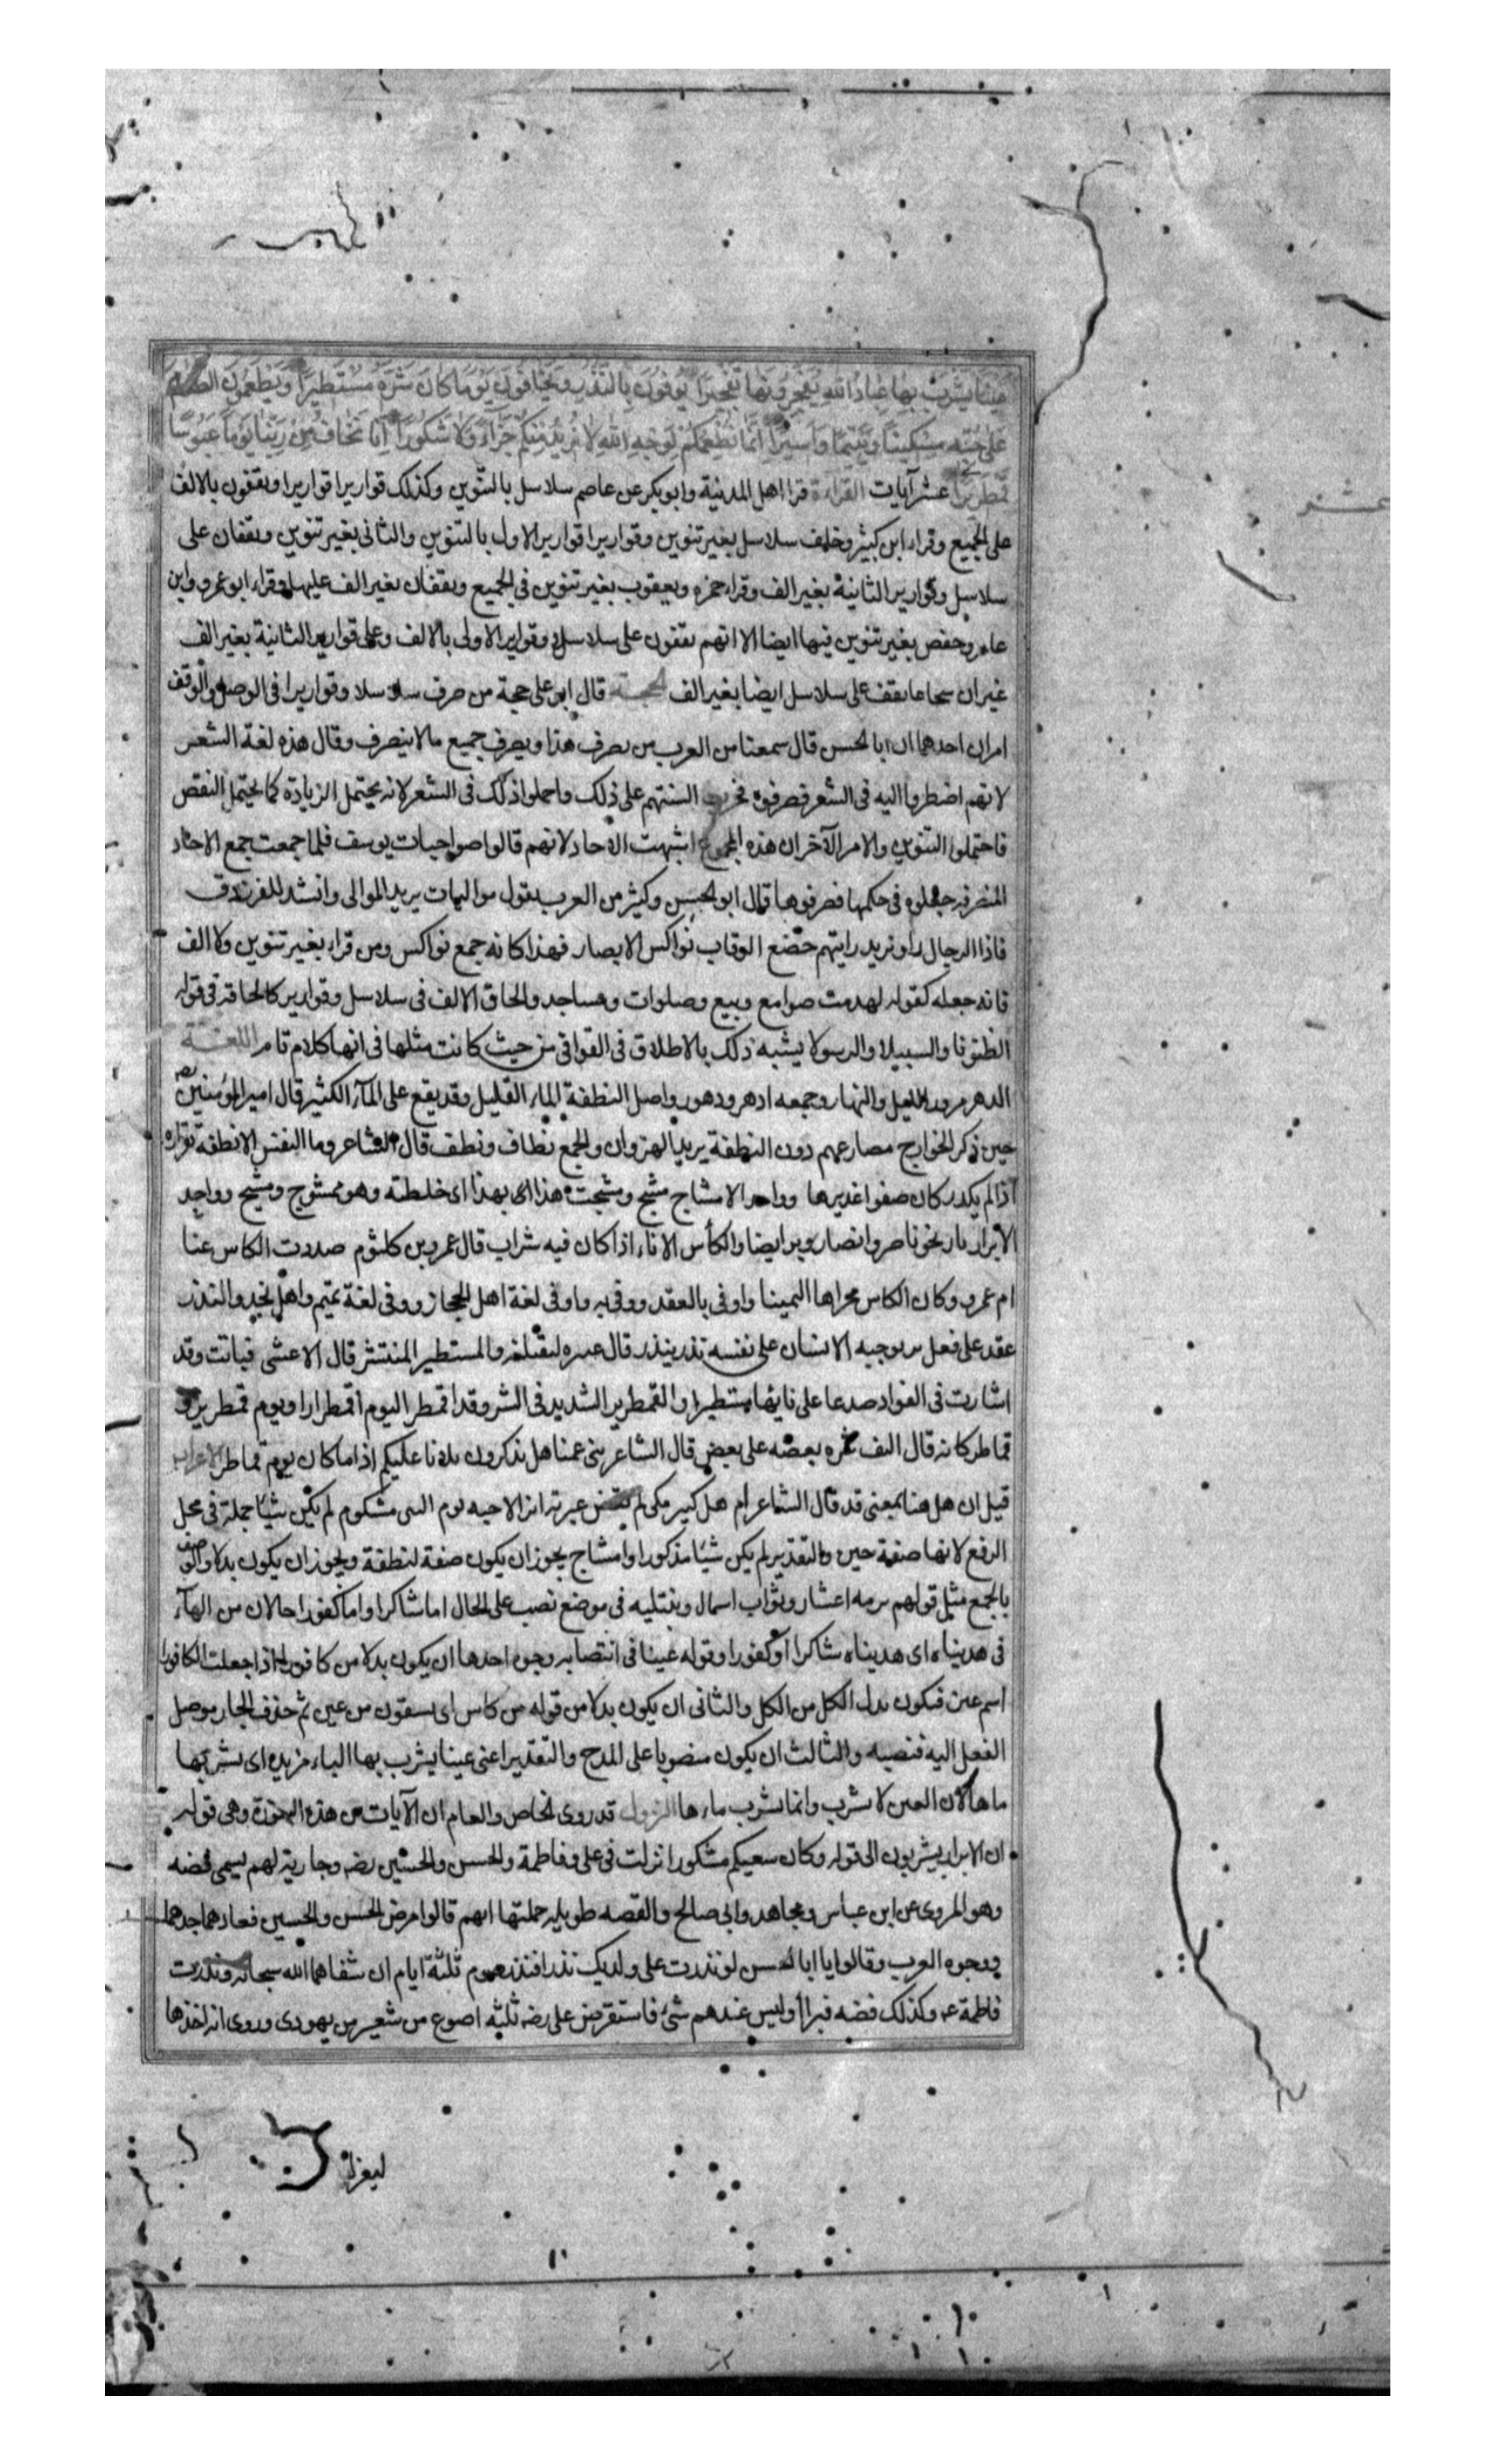 عينا يشرب بها عباد الله يفجرونها تفجيرا يوفون بالنذر ويخافون يوما كان شره مستطيرا ويطعمون الطعام
على حبه مسكينا ويتيما واسيرا انما نطعمكم لوجه الله لا نريد منكم جزاء ولا شكورا انا نخاف من ربنا يوما عبوسا
قمطريرا عشر آيات القراءة قرا اهل المدنية وابوبكر عن عاصم سلاسل بالتنوين وكذلك قواريرا قواريرا ويقفون بالالف
على الجميع وقراء ابن كبير وخلف سلاسل بغير تنوين وقواريرا قواريرا الاول بالتنوين والثانى بغير تنوين ويقفان على
سلاسل وقوارير الثانية بغير الف وقراء حمزه ويعقوب بغير تنوين فى الجميع ويقفان بغير الف عليهما وقراء ابو عمرو وابن
عامر وحفص بغير تنوين فيها ايضا الا انهم يقفون على سلاسل وقوارير الاولى بالالف وعلى قوارير الثانية بغير الف
غير ان يقف على سلاسل ايضا بغير الف الحجة قال ابو على حجة من صرف سلاسلا وقواريرا فى الوصل والوقف
امران احدهما ان ابا الحسن قال سمعنا من العرب من يصرف هذا ويصرف جميع ما لا ينصرف وقال هذه لغة الشعر
لانهم اضطروا اليه فى الشعر فصرفوه فجرت السنتهم على ذلك واحملوا ذلك فى الشعر لانه يحتمل الزيادة كما يحتمل النقص
فاحتملوا التنوين والامر الآخر ان هذه الجموع اشبهت الاحاد لانهم قالوا صواحبات يوسف فلما جمعت جمع الاحاد
المنصرفه جعلوه فى حكمها فصرفوها قال ابو الحسن وكثير من العرب يقول مواليات يريد الموالى وانشد للفرزدق
فاذا الرجال راو يزيد رايتهم خضع الوقاب نواكس الابصار فهذا كانه جمع نواكس ومن قراء بغير تنوين ولا الف
فانه جعله كقوله لهدمت صوامع وبيع وصلوات ومساجد والحاق الالف فى سلاسل وقوارير كالحاقه فى قوله
الظنونا والسبيلا والرسولا يشبه ذلك بالاطلاق فى القوافى من حيث كانت مثلها فى انها كلام تام اللغة
الدهر مرور الليل والنهار وجمعه ادهر ودهور واصل النطفة الماء القليل وقد يقع على الماء الكثير قال امير المؤمنين
حين ذكر الخوارج مصارعهم دون النطفة يريد النهروان والجمع نطاف ونطف قال الشاعر وما النفس الا نطفة بقراره
اذا لم يكدر كان صفوا غديرها وواحد الامشاج مشج ومشجت هذا بهذا اى خلطته وهو ممشوج ومشيج وواحد
الابرار بار نحو ناصر وانصار وبر ايضا والكأس الاناء اذا كان فيه شراب قال عمرو بن كلثوم صددت الكاس عنا
ام عمرو وكان الكاس مجراها اليمينا واوفى بالعقد ووفى به واوفى لغة اهل الحجاز ووفى لغة تميم واهل نجد والنذر
عقد على فعل بر يوجبه الانسان على نفسه نذر ينذر قال والمستطير المنتشر قال الاعشى فبانت وقد
اشارت فى الفواد صدعا على نايها مستطيرا والقمطرير الشديد فى الشر وقد اقمطر اليوم اقمطرارا ويوم قمطرير و
قماطر كانه قال التف شره بعضه على بعض قال الشاعر بنى عمنا هل تذكرون بلانا عليكم اذا ما كان يوم قماطر الاعراب
قيل ان هل هنا بمعنى قد قال الشاعر ام هل كبير بكى لم يقض عبرته اثر الاحبه يوم البين مشكوم لم يكن شيئا جملة فى محل
الرفع لانها صفة حين والتقدير لم يكن شيئا مذكورا وامشاج يجوز ان يكون صفة لنطفة ويجوز ان يكون بدلا والوصف
بالجمع مثل قولهم برمه اعشار وثواب اسمال ونبتليه فى موضع نصب على الحال اما شاكرا واما كفورا حالان من الهآء
فى هديناه اى هديناه شاكرا او كفورا وقوله عينا فى انتصابه وجوه احدها ان يكون بدلا من كافورا اذا جعلت الكافور
اسم عين فيكون بدل الكل من الكل والثانى ان يكون بدلا من قوله من كاس اى يسقون من عين ثم حذف الجار موصل
الفعل اليه فنصبه والثالث ان يكون منصوبا على المدح والتقدير اعنى عينا يشرب بها الباء مزيده اى يشربها
ماءها لان العين لا تشرب وانما يشرب ماءها النزول قد روى الخاص والعام ان الآيات من هذه السورة وهى قوله
ان الابرار يشربون الى قوله وكان سعيكم مشكورا نزلت فى على وفاطمة والحسن والحسين رضه وجارية لهم يسمى فضه
وهو المروى عن ابن عباس ومجاهد وابى صالح والقصه طويله جملتها انهم قالوا مرض الحسن والحسين فعادهما جدهما
ووجوه العرب وقالوا يا ابا الحسن لو نذرت على ولديك نذرا فنذر صوم ثلثة ايام ان شفاهما الله سبحانه ونذرت
فاطمة عه وكذلك فضه فبرأ وليس عندهم شئ فاستقرض على رضه ثلثه اصوع من شعير من يهودى وروى انه اخذها
ليغزل
عشر